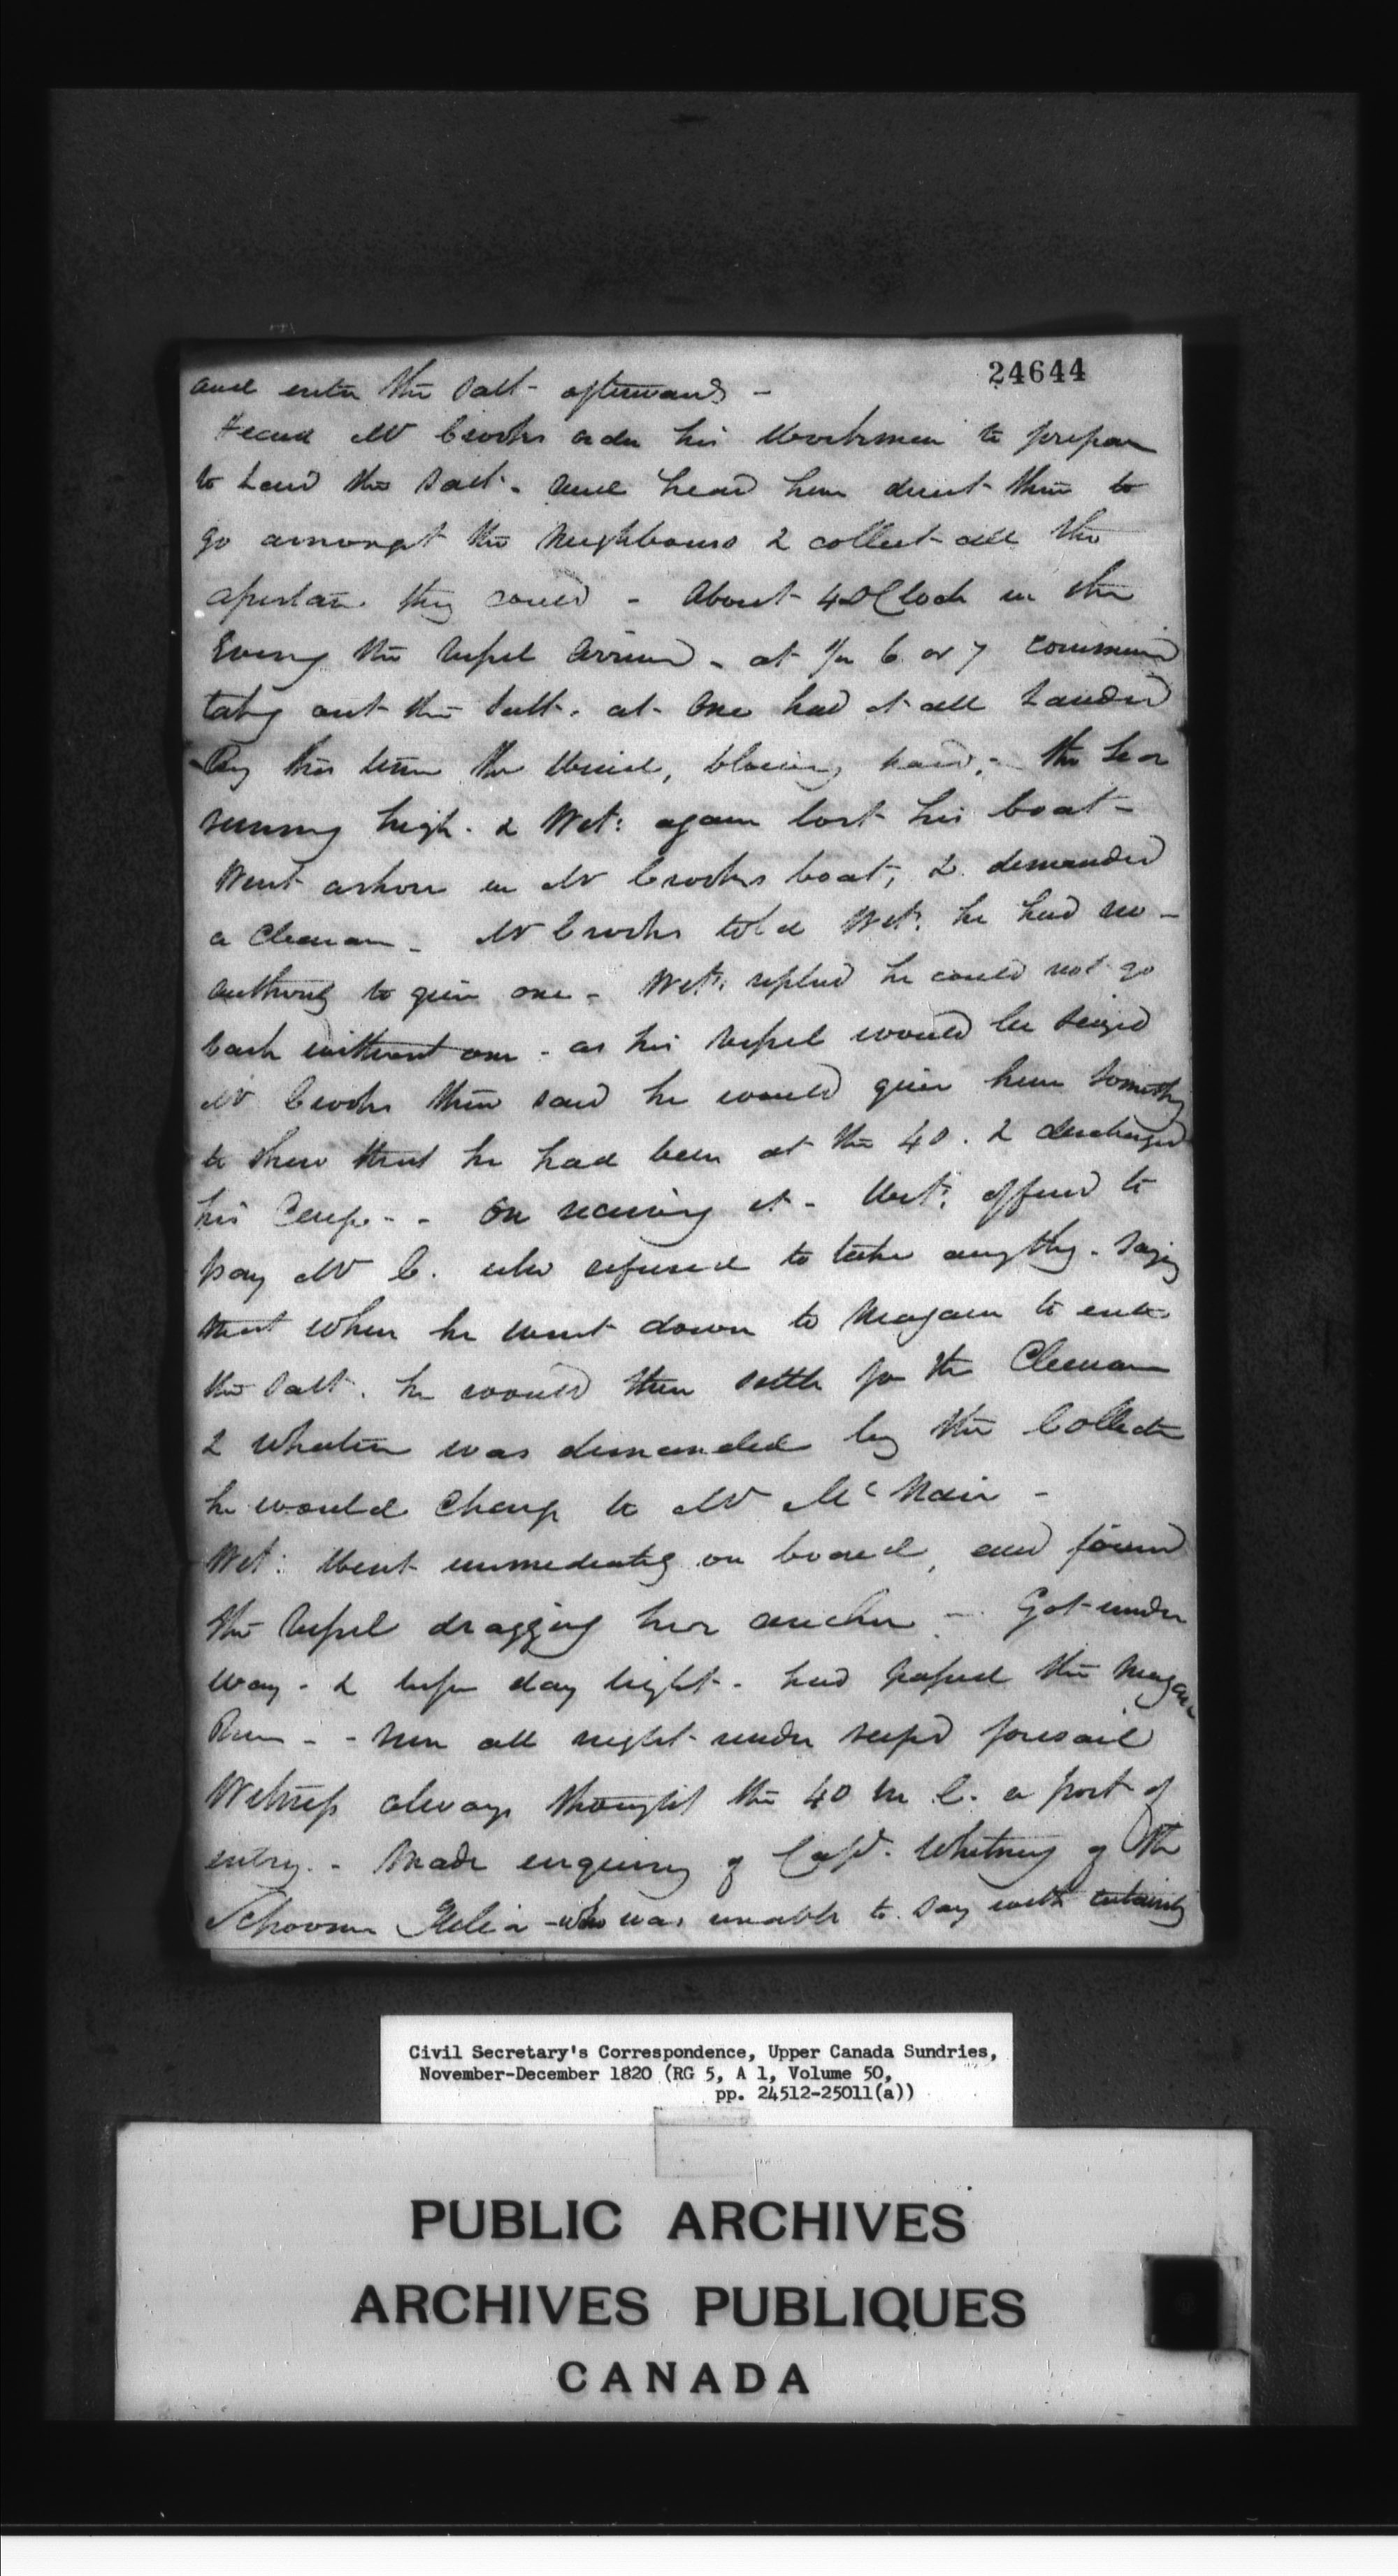 24644
and enter the Salt afterwards -
Heard Mr Crooks order his Workmen to prepare
to Land the Salt - and heard him direct them to
go amongst the Neighbours & collect all the
assistance they could - About 4 OClock in the
Evening the Vessel Arrived - at 6 or 7 commenced
taking out the Salt - at One had it all Landed
By this time the Wind, blowing hard, - the Sea
running high - & Wit: again lost his boat -
Went ashore in Mr Crooks boat, & demanded
a Clearance - Mr Crooks told Wit: he had no -
authority to give one - Wit: replied he could not go
back without one - as his Vessel would be Seized
Mr Crooks then said he would give him Something
to shew that he had been at the 40 . & discharged
his Cargo - - On receiving it - Wit: offered to
pay Mr C. who refused to take anything - Saying
that when he went down to Niagara to enter
the Salt . he would then settle for the Clearance
& whatever was demanded by the Collector
he would Charge to Mr McNair -
Wit: Went immediately on board, and found
the Vessel dragging her anchor - Got under
way - & before day light - had passed the Niagara
River - - run all night under reefd foresail
Witness always thought the 40 M C. a port of
entry. - Made enquiry of Capt. Whitney of the
Schooner Julia - who was unable to say with certainty
Civil Secretary's Correspondence, Upper Canada Sundries,
November-December 1820 (RG 5, A 1, Volume 50,
pp. 24512-25011(a))
PUBLIC ARCHIVES
ARCHIVES PUBLIQUES
CANADA